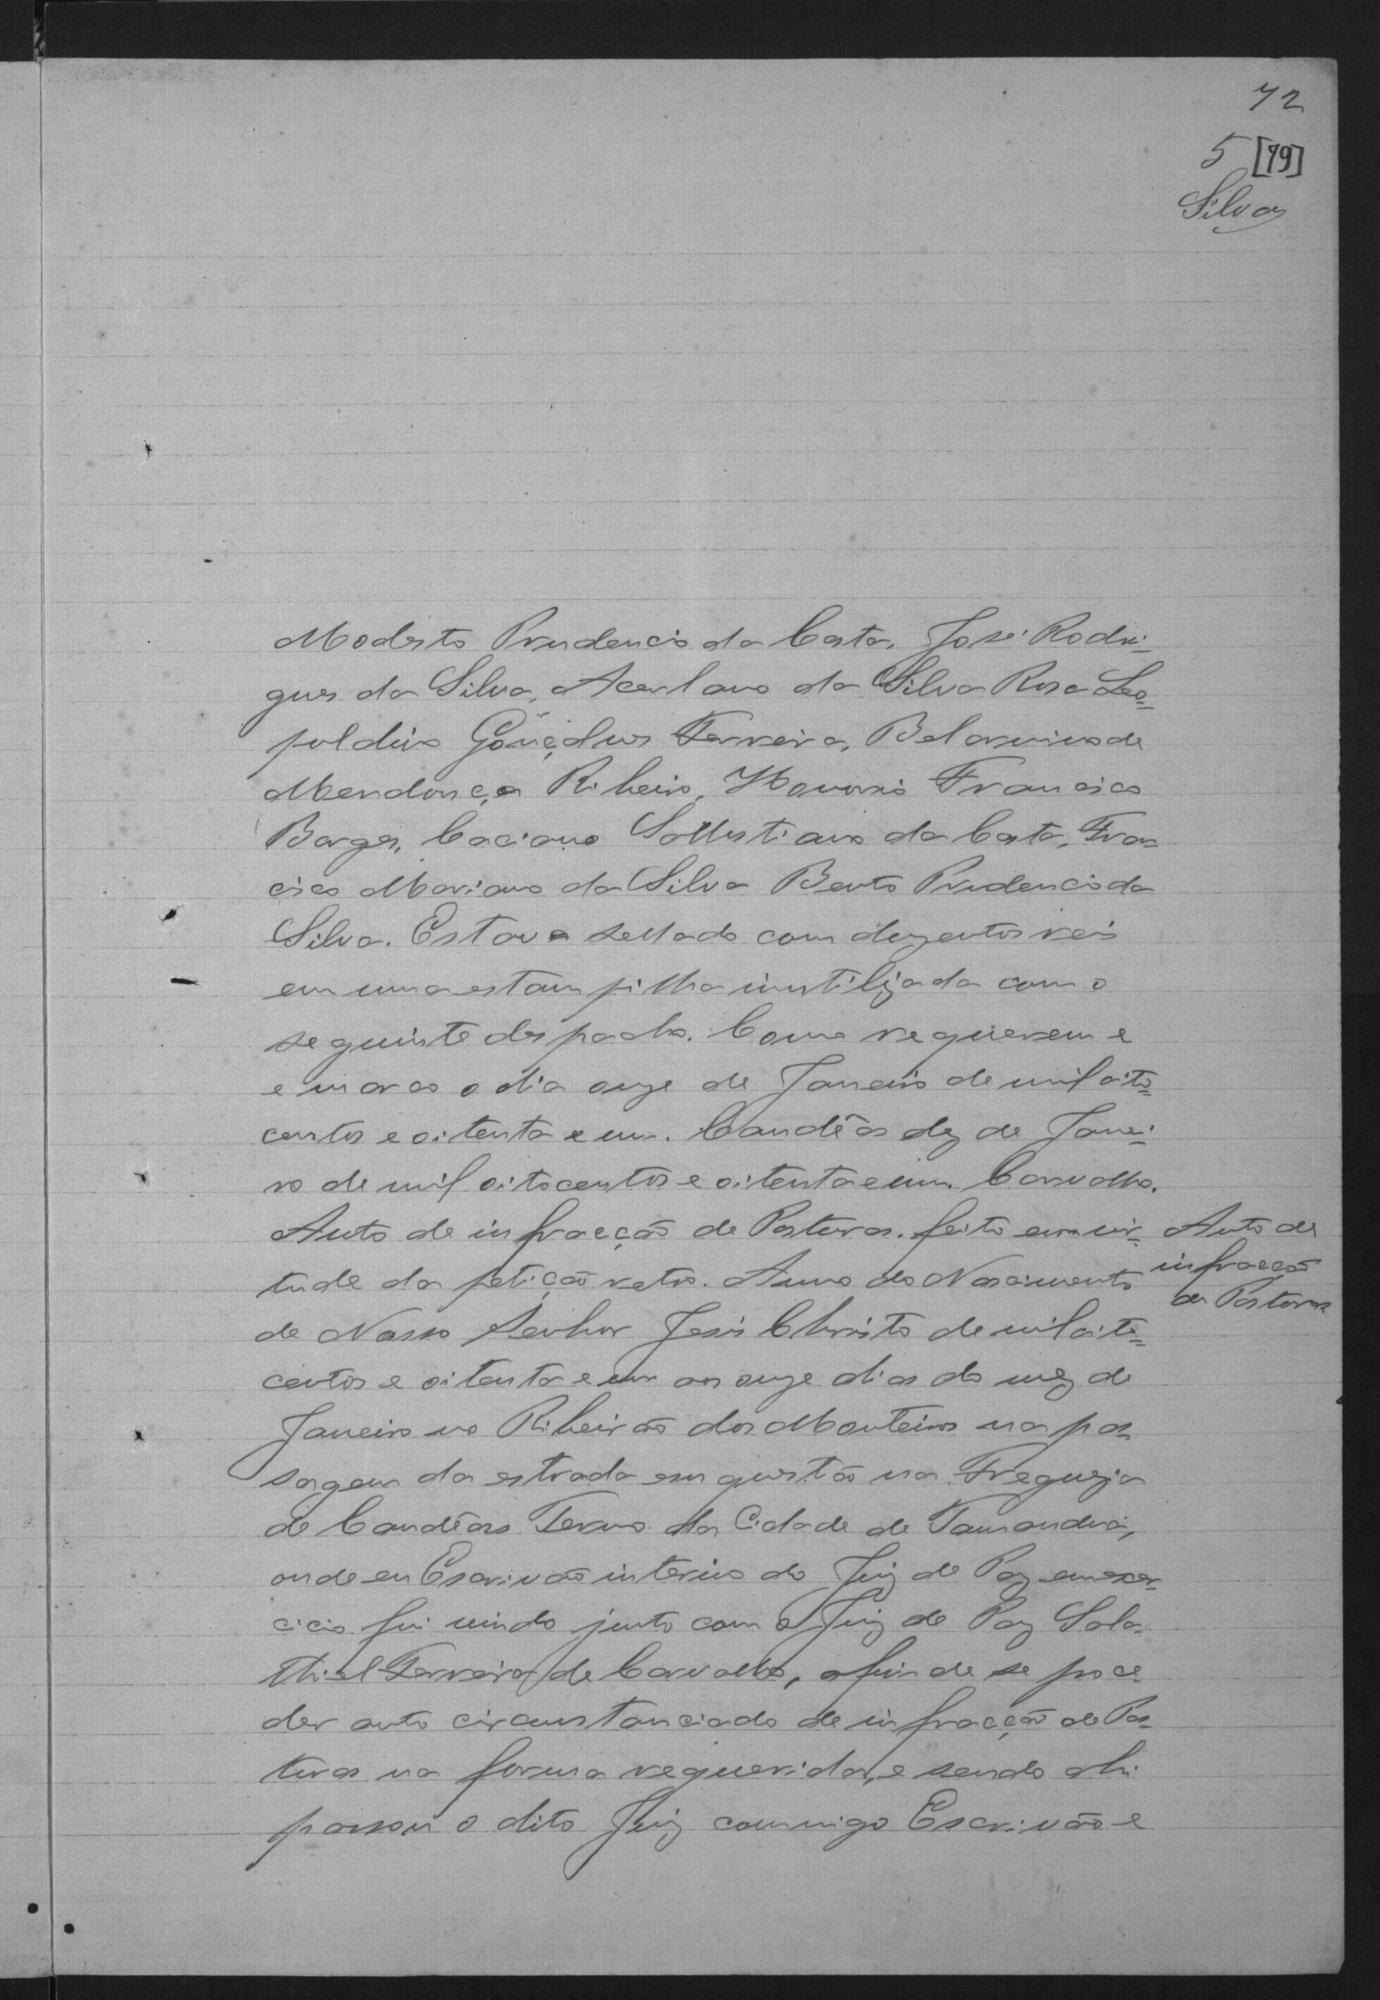 72
5 [79]
Silva
Modesto Prudencio da Costa, José Rodri-
gues da Silva, Acerlano da Silva Rosa Leo-
poldino Gonçalves Ferreira, Belarmino de
Mendonça Ribeiro, Honorio Francisco
Borges, Caciano Sallustiano da Costa, Fran-
cisco Mariano da Silva Bento Prudencio da
Silva. Estava sellado com duzentos reis
em uma estampilha inutilizada com o
seguinte despacho. Como requerem e
e marco o dia onze de Janeiro de mil oito-
centos e oitenta e um. Candêas dez de Janei-
ro de mil oitocentos e oitenta e um. Carvalho.
Auto de infracção de Posturas. feito em vir-
tude da petição retro. Anno do Nascimento
de Nosso Senhor Jesus Christo de mil oito-
centos e oitenta e um aos onze dias do mez de
Janeiro no Ribeirão dos Monteiros na pas-
sagem da estrada em questão na Freguezia
de Candêas Termo da Cidade de Tamanduá,
onde eu Escrivão interino do Juiz de Paz em exer-
cicio fui vindo junto com o Juiz de Paz Sala-
thiel Ferreira de Carvalho, afim de se proce-
der auto circunstanciado de infracção de Pos-
turas na forma requerida, e sendo ahi
passou o dito Juiz commigo Escrivão e
Auto de
infracção
de Posturas